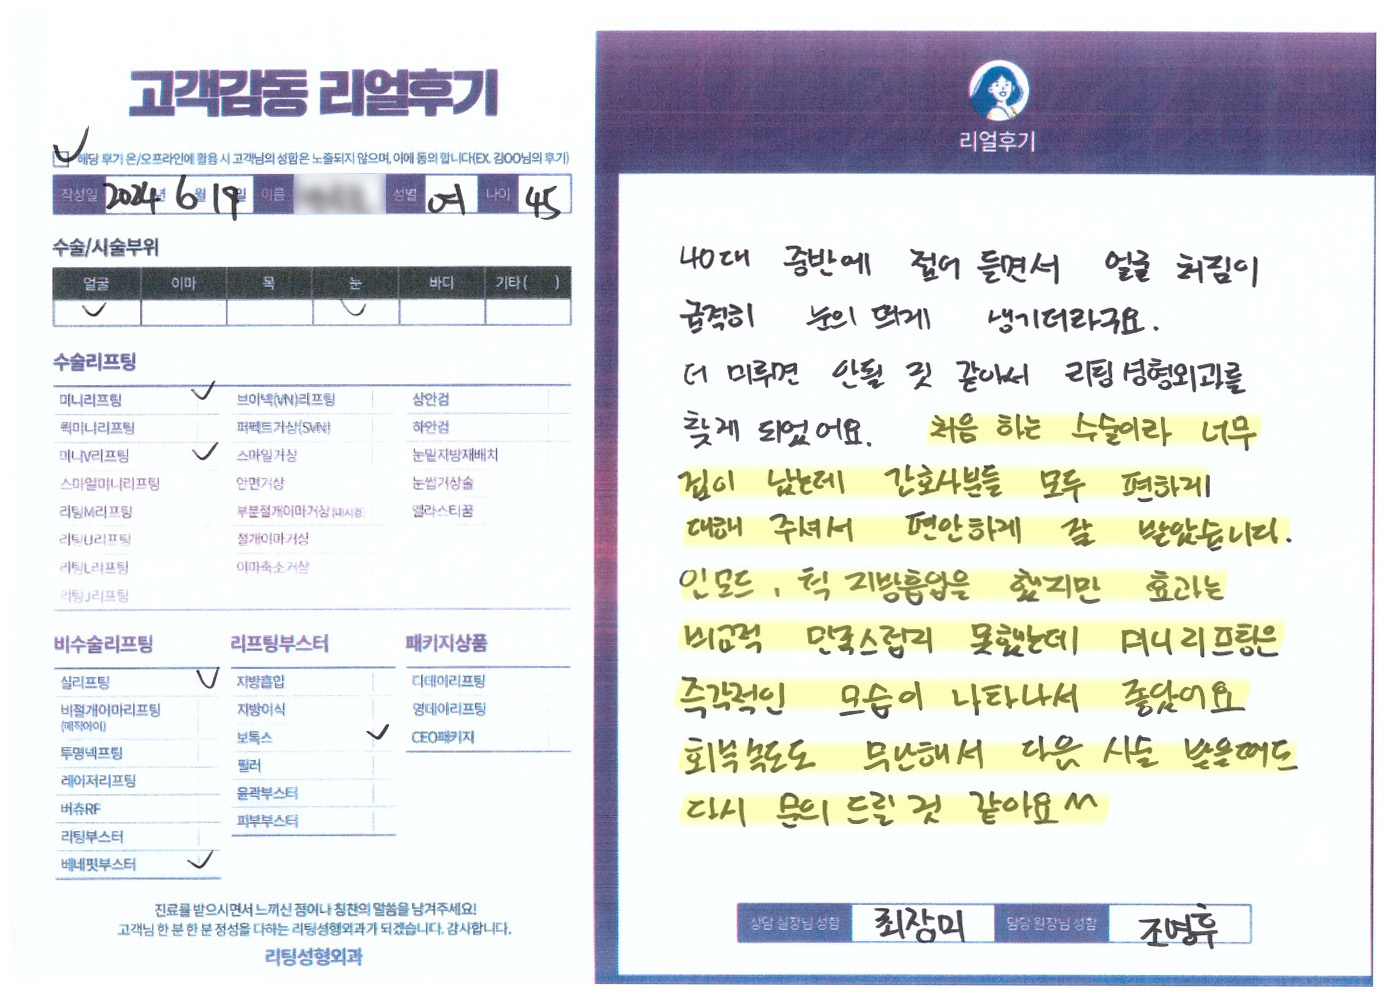 고객감동 리얼후기
해당 후기 온/오프라인에 활용 시 고객님의 성함은 노출되지 않으며, 이에 동의 합니다(EX. 김OO님의 후기)
작성일 2024년 6월 19일 이름 성별 여 나이 45
수술/시술부위
얼굴 이마 목 눈 바디 기타 ( )
수술리프팅
미니리프팅 브이넥(VN)리프팅 상안검
퀵미니리프팅 퍼펙트거상(SVN) 하안검
미니V리프팅 스마일거상 눈밑지방재배치
스마일미니리프팅 안면거상 눈썹거상술
리팅M리프팅 부분절개이마거상(내시경) 엘라스티꿈
리팅U리프팅 절개이마거상
리팅L리프팅 이마축소거상
리팅J리프팅
비수술리프팅
실리프팅
비절개이마리프팅
(매직에이)
투명넥프팅
레이저리프팅
버츄RF
리팅부스터
베네핏부스터
리프팅부스터
지방흡입
지방이식
보톡스
필러
윤곽부스터
피부부스터
패키지상품
디데이리프팅
영데이리프팅
CEO패키지
진료를 받으시면서 느끼신 점이나 칭찬의 말씀을 남겨주세요!
고객님 한 분 한 분 정성을 다하는 리팅성형외과가 되겠습니다. 감사합니다.
리팅성형외과
리얼후기
40대 중반에 접어 들면서 얼굴 처짐이
급격히 눈의 띄게 생기더라구요.
더 미루면 안될 것 같아서 리팅성형외과를
찾게 되었어요. 처음 하는 수술이라 너무
겁이 났는데 간호사분들 모두 편하게
대해 주셔서 편안하게 잘 받았습니다.
인모드, 턱 지방흡입을 했지만 효과는
비교적 만족스럽지 못했는데 미니리프팅은
즉각적인 모습이 나타나서 좋았어요
회복속도도 무난해서 다음 시술 받을때도
다시 문의 드릴 것 같아요 ^^
상담 실장님 성함 최장미 담당 원장님 성함 조명후